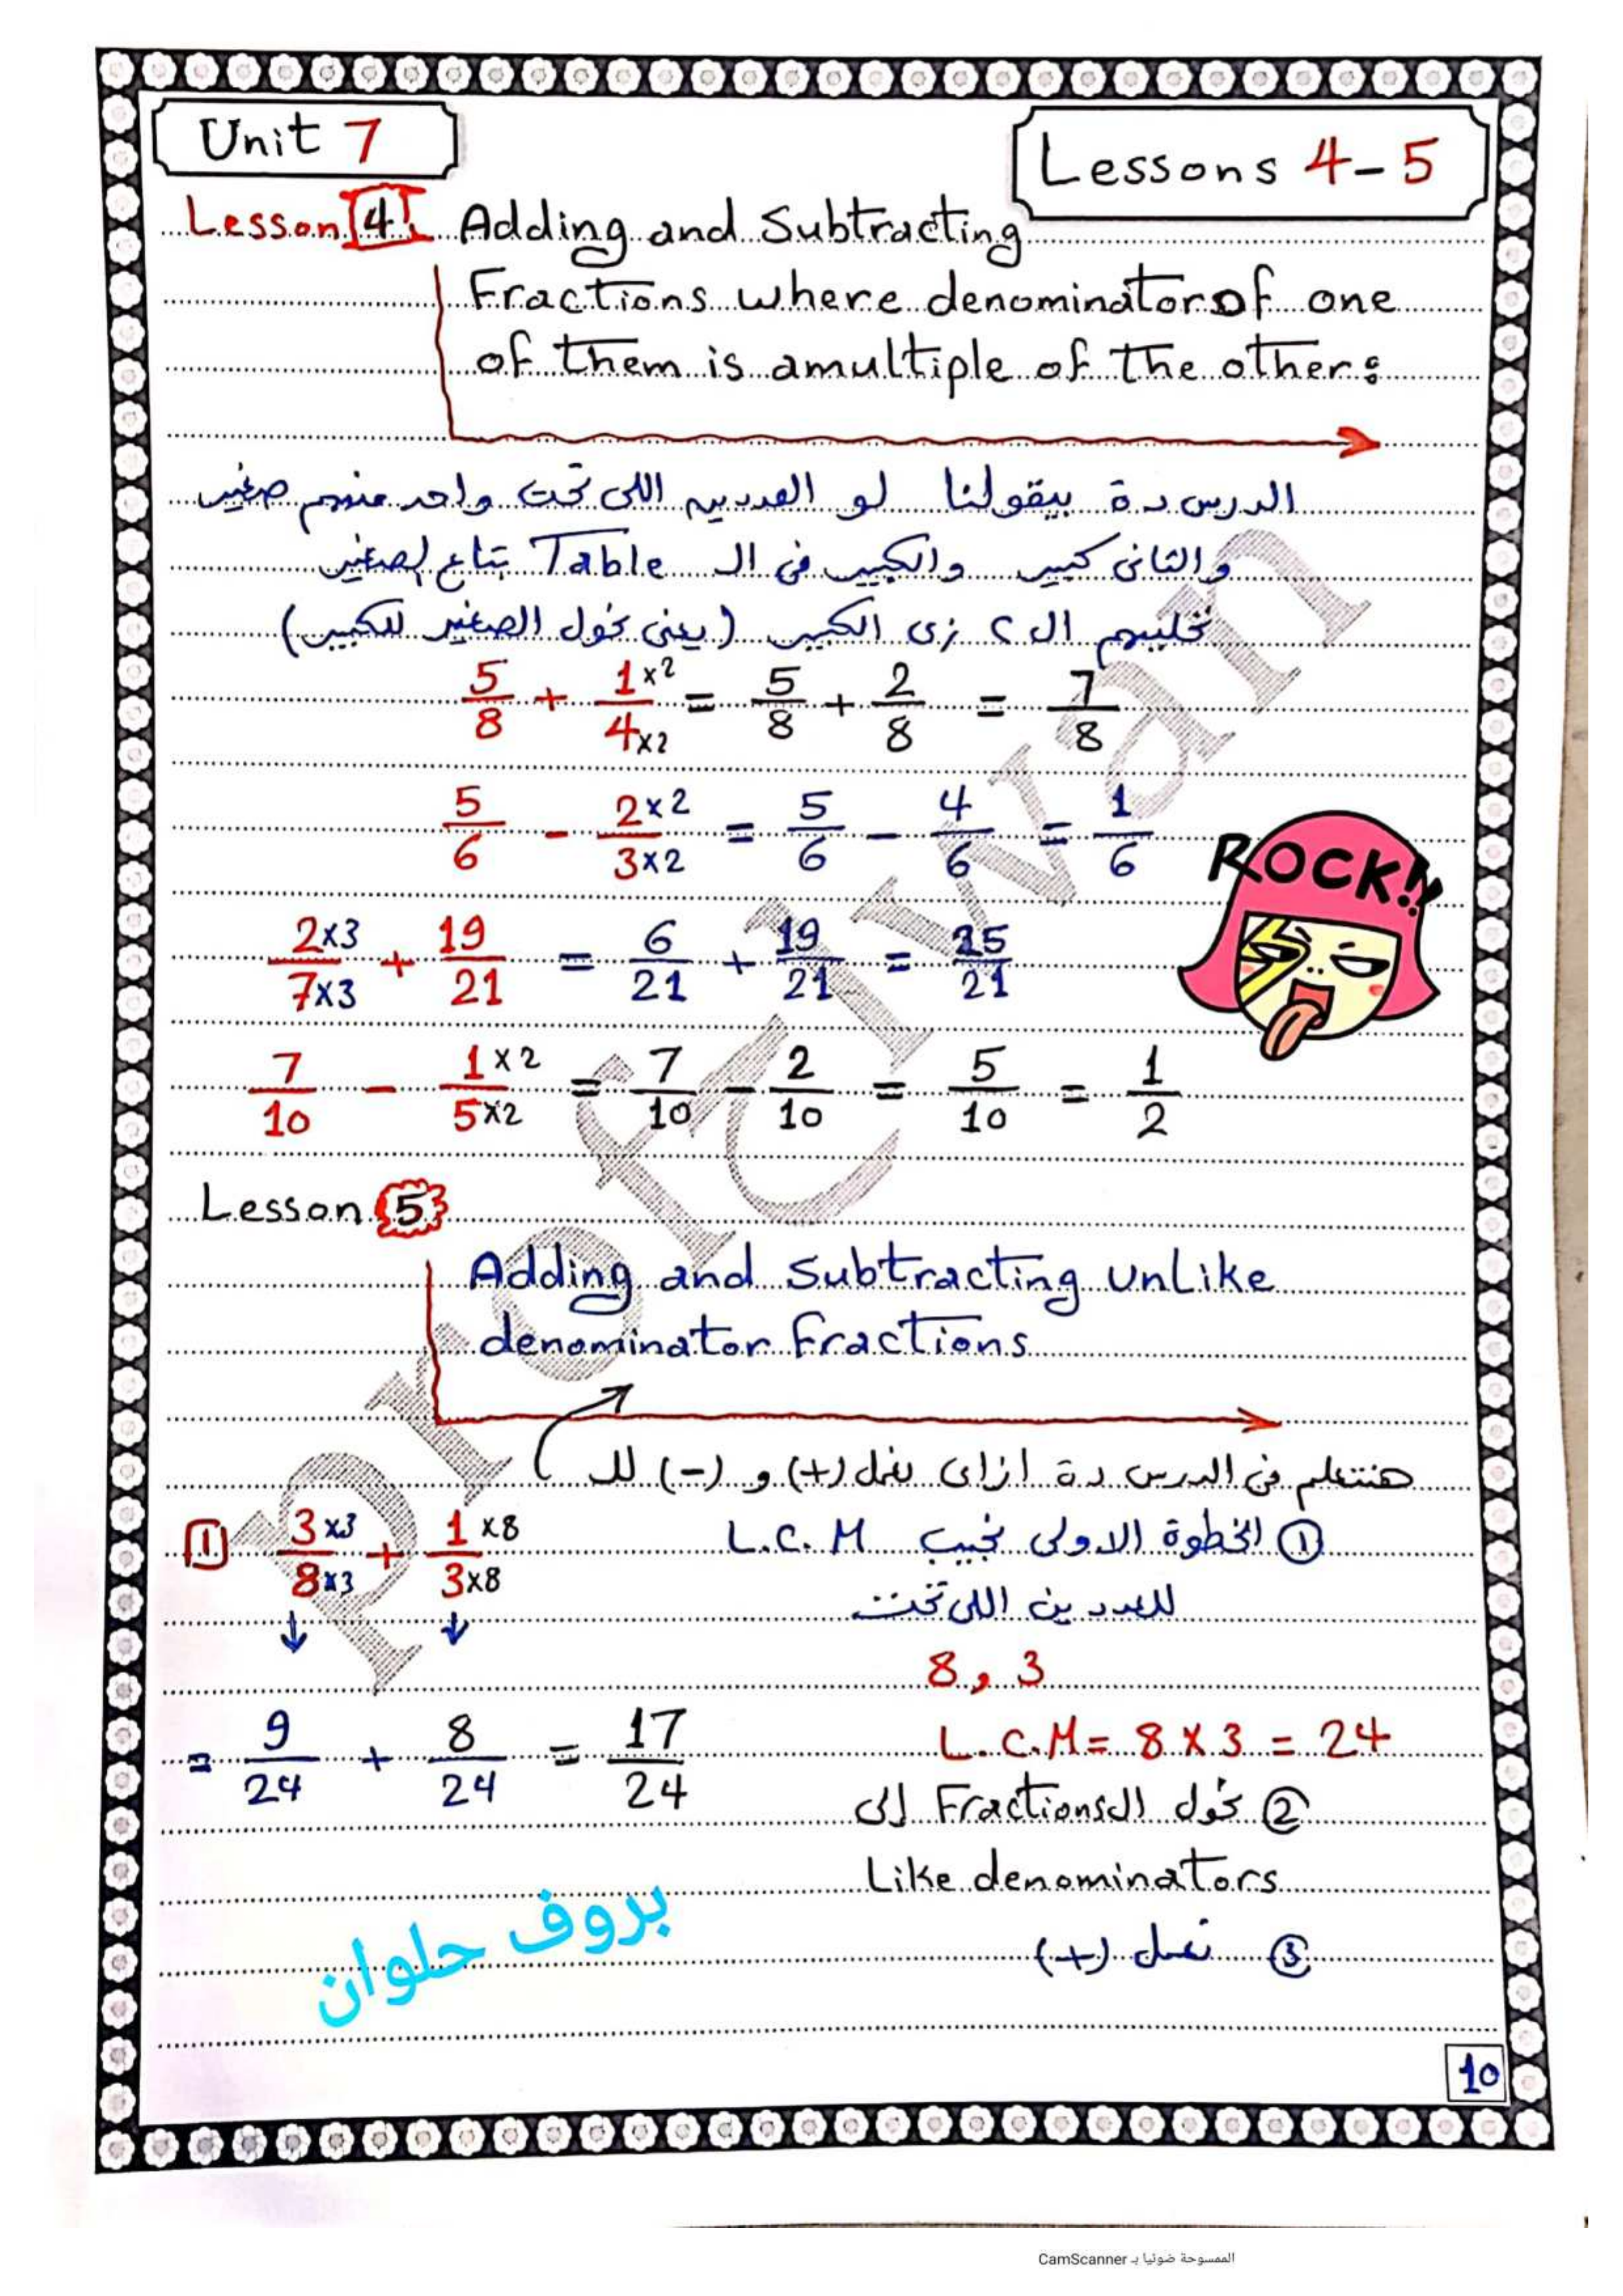 Unit 7
Lessons 4-5
Lesson 4 Adding and Subtracting
Fractions where denominator of one
of them is a multiple of the other:
الدرس دة بيقولنا لو العددين اللى تحت واحد منهم صغير
والثانى كبير والكبير فى ال Table بتاع الصغير
نخليهم ال ٢ زى الكبير (يعنى نحول الصغير للكبير)
5/8 + 1×2/4×2 = 5/8 + 2/8 = 7/8
5/6 - 2×2/3×2 = 5/6 - 4/6 = 1/6
ROCK!!
2×3/7×3 + 19/21 = 6/21 + 19/21 = 25/21
7/10 - 1×2/5×2 = 7/10 - 2/10 = 5/10 = 1/2
Lesson 5
Adding and Subtracting Unlike
denominator Fractions
هنتعلم فى الدرس دة ازاى نعمل (+) و (-) لل
1 3×3/8×3 + 1×8/3×8
① الخطوة الاولى نجيب L.C.M
للعددين اللى تحت
8, 3
= 9/24 + 8/24 = 17/24
L.C.M = 8 × 3 = 24
② نحول ال Fractions إلى
Like denominators
③ نعمل (+)
بروف حلوان
10
Prof Helwan
الممسوحة ضوئيا بـ CamScanner